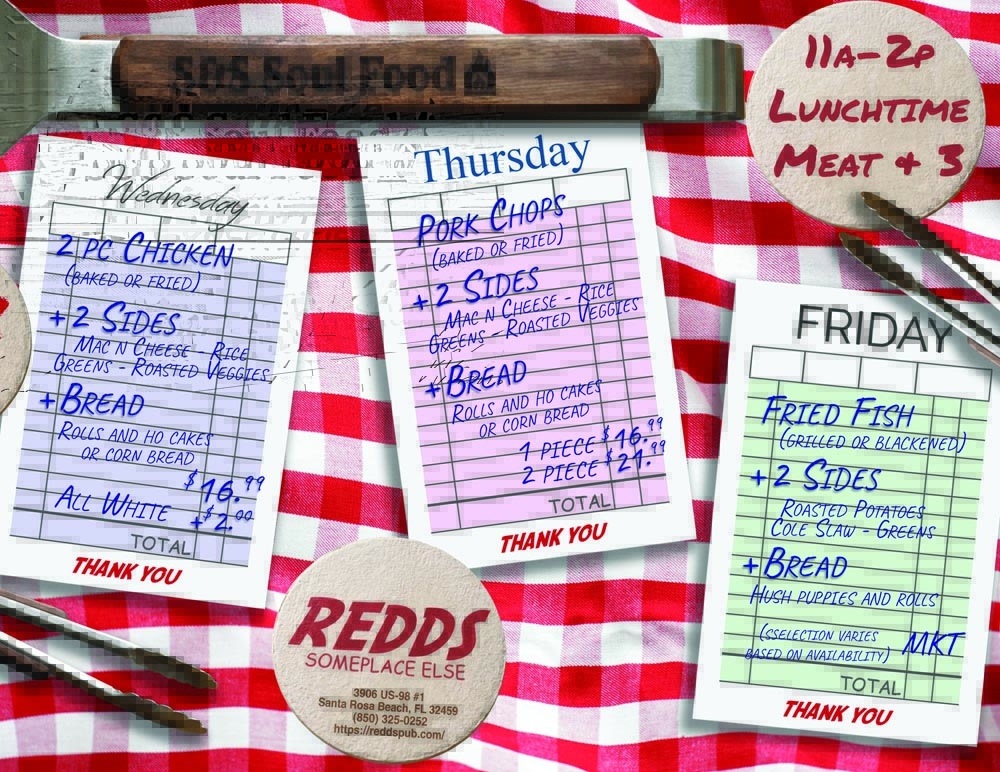 S&S Soul Food
11A-2P
LUNCHTIME
MEAT & 3
Wednesday
2 PC CHICKEN
(BAKED OR FRIED)
+2 SIDES
MAC N CHEESE - RICE
GREENS - ROASTED VEGGIES
+BREAD
ROLLS AND HO CAKES
OR CORN BREAD
$16.99
ALL WHITE +$2.00
TOTAL
THANK YOU
Thursday
PORK CHOPS
(BAKED OR FRIED)
+2 SIDES
MAC N CHEESE - RICE
GREENS - ROASTED VEGGIES
+BREAD
ROLLS AND HO CAKES
OR CORN BREAD
1 PIECE $16.99
2 PIECE $21.99
TOTAL
THANK YOU
FRIDAY
FRIED FISH
(GRILLED OR BLACKENED)
+2 SIDES
ROASTED POTATOES
COLE SLAW - GREENS
+BREAD
HUSH PUPPIES AND ROLLS
(SSELECTION VARIES
BASED ON AVAILABILITY) MKT
TOTAL
THANK YOU
REDDS
SOMEPLACE ELSE
3906 US-98 #1
Santa Rosa Beach, FL 32459
(850) 325-0252
https://reddspub.com/